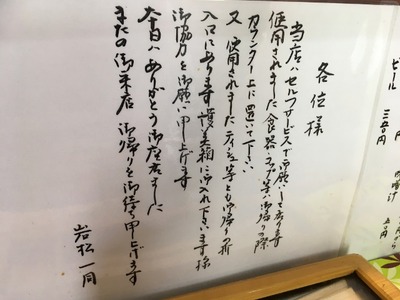 各位様
当店ハセルフサービスで御願いして居ります
使用されました食器、コップ等ハ御帰りの際
カウンター上に置いて下さい
又使用されましたティシュ等とも御帰りの折
入口にあります護美箱に御入れ下さいます様
御協力を御願い申し上げます
本日ハありがとう御座居ました
またの御来店御帰りを御待ち申し上げます
岩松一同
ビール
三五〇円